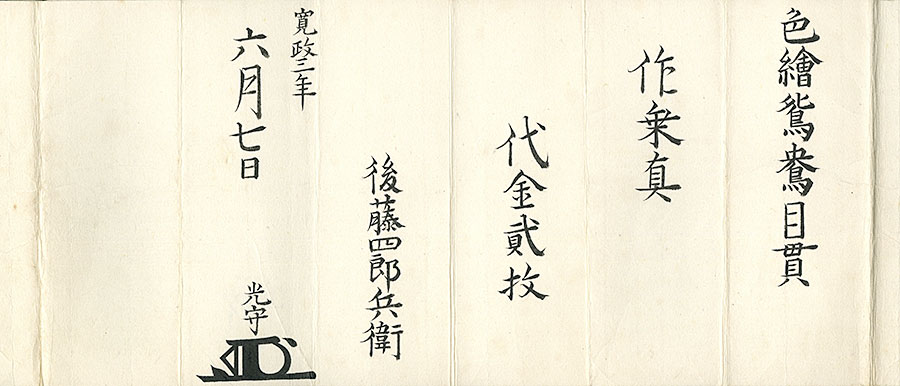 色繪鴛鴦目貫
作乗真
代金貳枚
後藤四郎兵衛
寛政二年
六月七日
光守